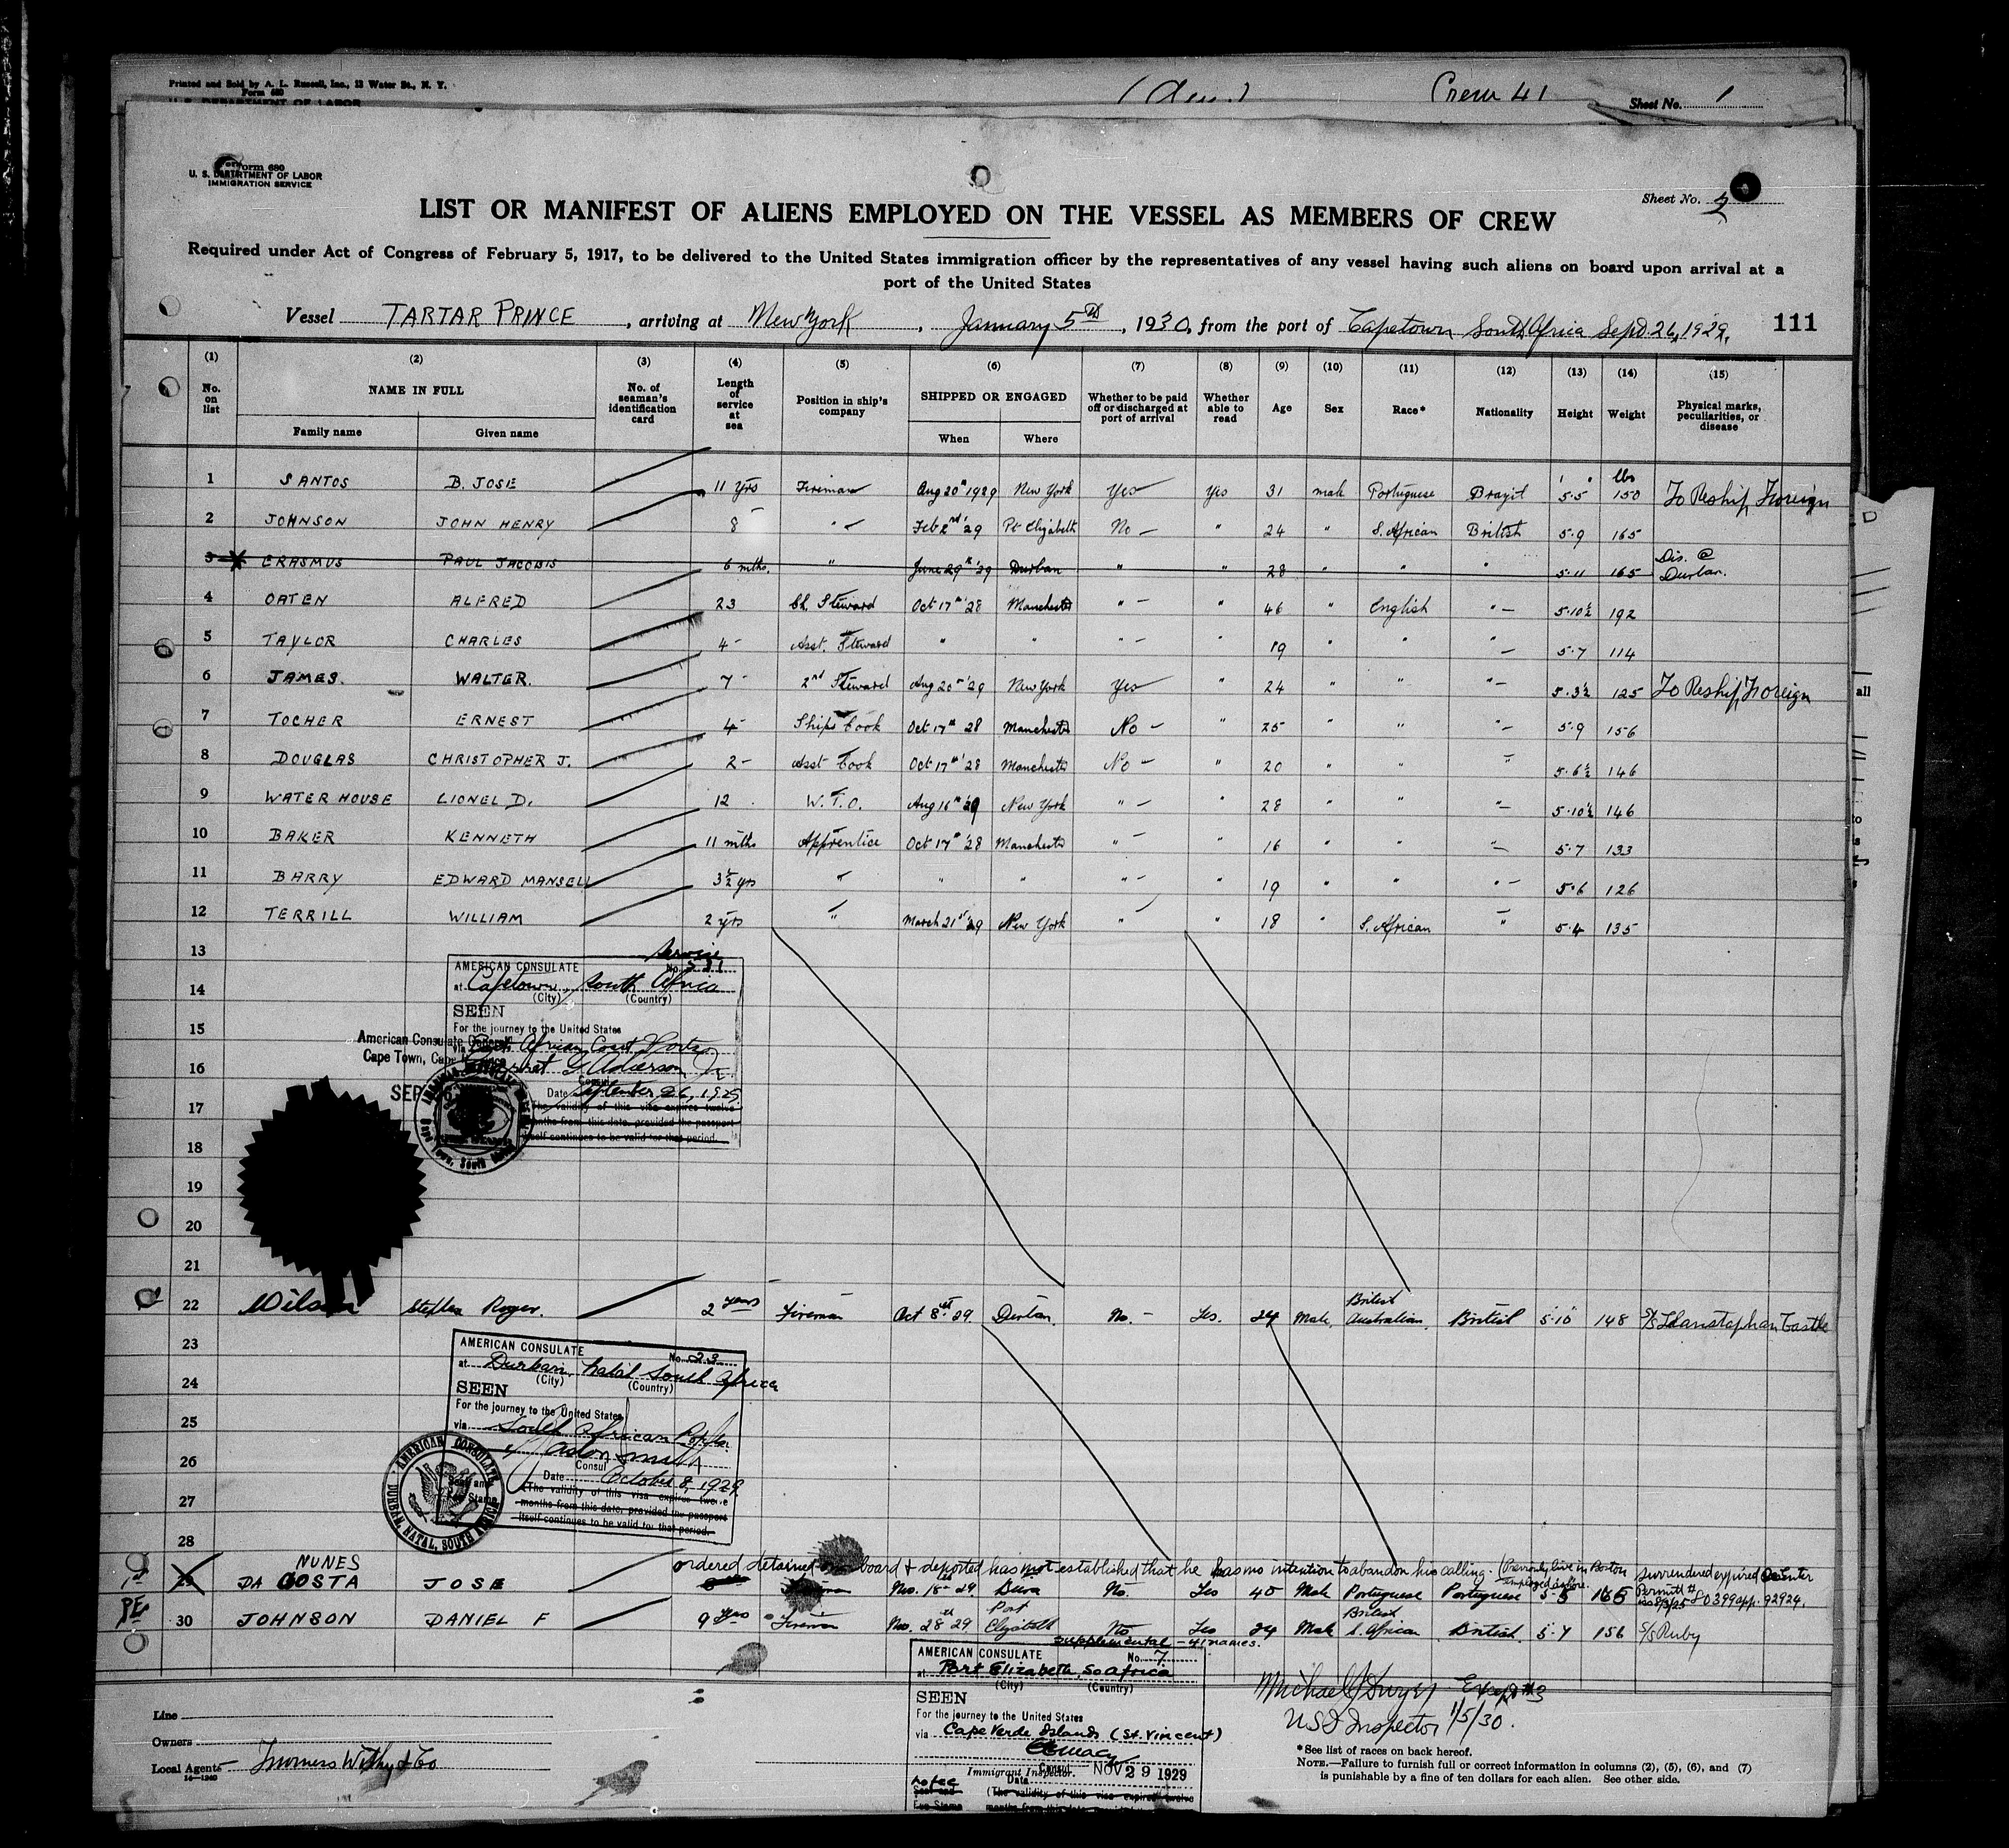 Printed and Sold by A. L. Russell, Inc., 12 Water St., N. Y.
Form 680
U. S. DEPARTMENT OF LABOR
Crew 41
Sheet No. 1
Form 680
U. S. DEPARTMENT OF LABOR
IMMIGRATION SERVICE
Sheet No. 2
LIST OR MANIFEST OF ALIENS EMPLOYED ON THE VESSEL AS MEMBERS OF CREW
Required under Act of Congress of February 5, 1917, to be delivered to the United States immigration officer by the representatives of any vessel having such aliens on board upon arrival at a
port of the United States
Vessel TARTAR PRINCE, arriving at New York, January 5th, 1930, from the port of Capetown South Africa Sept 26, 1929. 111
(1) (2) (3) (4) (5) (6) (7) (8) (9) (10) (11) (12) (13) (14) (15)
No. on list NAME IN FULL Family name Given name No. of seaman's identification card Length of service at sea Position in ship's company SHIPPED OR ENGAGED When Where Whether to be paid off or discharged at port of arrival Whether able to read Age Sex Race* Nationality Height Weight Physical marks, peculiarities, or disease
1 SANTOS B. JOSE 11 yrs Fireman Aug 20th 1929 New York Yes Yes 31 male Portuguese Brazil 5' 5" 150 lbs To Reship Foreign
2 JOHNSON JOHN HENRY 8 " Feb 2nd '29 Pt Elizabeth No " 24 " S. African British 5.9 165
3 ERASMUS PAUL JACOBUS 6 mths. " June 29th '29 Durban " " 28 " " " 5.11 165 Dis. @ Durban.
4 OATEN ALFRED 23 Ch. Steward Oct 17th '28 Manchester " " 46 " English " 5.10½ 192
5 TAYLOR CHARLES 4 Asst. Steward " " " " 19 " " " 5.7 114
6 JAMES. WALTER. 7 2nd Steward Aug 20th '29 New York Yes " 24 " " " 5.3½ 125 To Reship Foreign
7 TOCHER ERNEST 4 Ships Cook Oct 17th 28 Manchester No " 25 " " " 5.9 156
8 DOUGLAS CHRISTOPHER J. 2 Asst Cook Oct 17th '28 Manchester No " 20 " " " 5.6½ 146
9 WATERHOUSE LIONEL D. 12 W.T.O. Aug 16th '29 New York " " 28 " " " 5.10½ 146
10 BAKER KENNETH 11 mths Apprentice Oct 17th '28 Manchester " " 16 " " " 5.7 133
11 BARRY EDWARD MANSELL 3½ yrs " " " " " 19 " " " 5.6 126
12 TERRILL WILLIAM 2 yrs " March 21st '29 New York " " 18 " S. African " 5.4 135
13
Service
AMERICAN CONSULATE No.
14
at Capetown, South Africa
(City) (Country)
SEEN
15
For the journey to the United States
American Consulate General
via African Coast Ports
Cape Town, Cape
16
Consul
SEP
Date September 26, 1929.
17
The validity of this visa expires twelve
months from this date, provided the passport
itself continues to be valid for that period.
18
19
20
21
22 Wilson Stephen Roger. 2 years Fireman Oct 8th 29 Durban. No. Yes. 24 Male. British Australian. British 5'10" 148 S/S Llanstephan Castle
23
AMERICAN CONSULATE No. 23
at Durban, Natal South Africa
(City) (Country)
24
SEEN
For the journey to the United States
25
via South African Ports
26
Consul
Date October 8, 1929.
AMERICAN CONSULATE
DURBAN, NATAL, SOUTH AFRICA
27
The validity of this visa expires twelve
months from this date, provided the passport
itself continues to be valid for that period.
28
ordered detained on board & deported has not established that he has no intention to abandon his calling. (Previously live in Boston surrendered expired Re Enter
29 NUNES DA COSTA JOSE Nov. 18th 29 No. Yes 40 Male Portuguese Portuguese 5-5 165 Permit # 80399 app. 92929.
30 JOHNSON DANIEL F 9 yrs Fireman Nov. 28th 29 Port Elizabeth No Yes 24 Male British S. African British. 5.7 156 S/S Ruby
supplemental - 41 names.
AMERICAN CONSULATE No. 7
at Port Elizabeth, So Africa
(City) (Country)
SEEN
For the journey to the United States
via Cape Verde Islands (St. Vincent)
Consul NOV 29 1929
Immigrant Inspector.
Date
No fee
(The validity of this visa expires twelve
months from this date, provided the passport
Michael J Dwyer Except #3
US I Inspector 1/5/30.
Line
Owners
Local Agents Furness Withy & Co
14-1240
*See list of races on back hereof.
NOTE.—Failure to furnish full or correct information in columns (2), (5), (6), and (7)
is punishable by a fine of ten dollars for each alien. See other side.
all